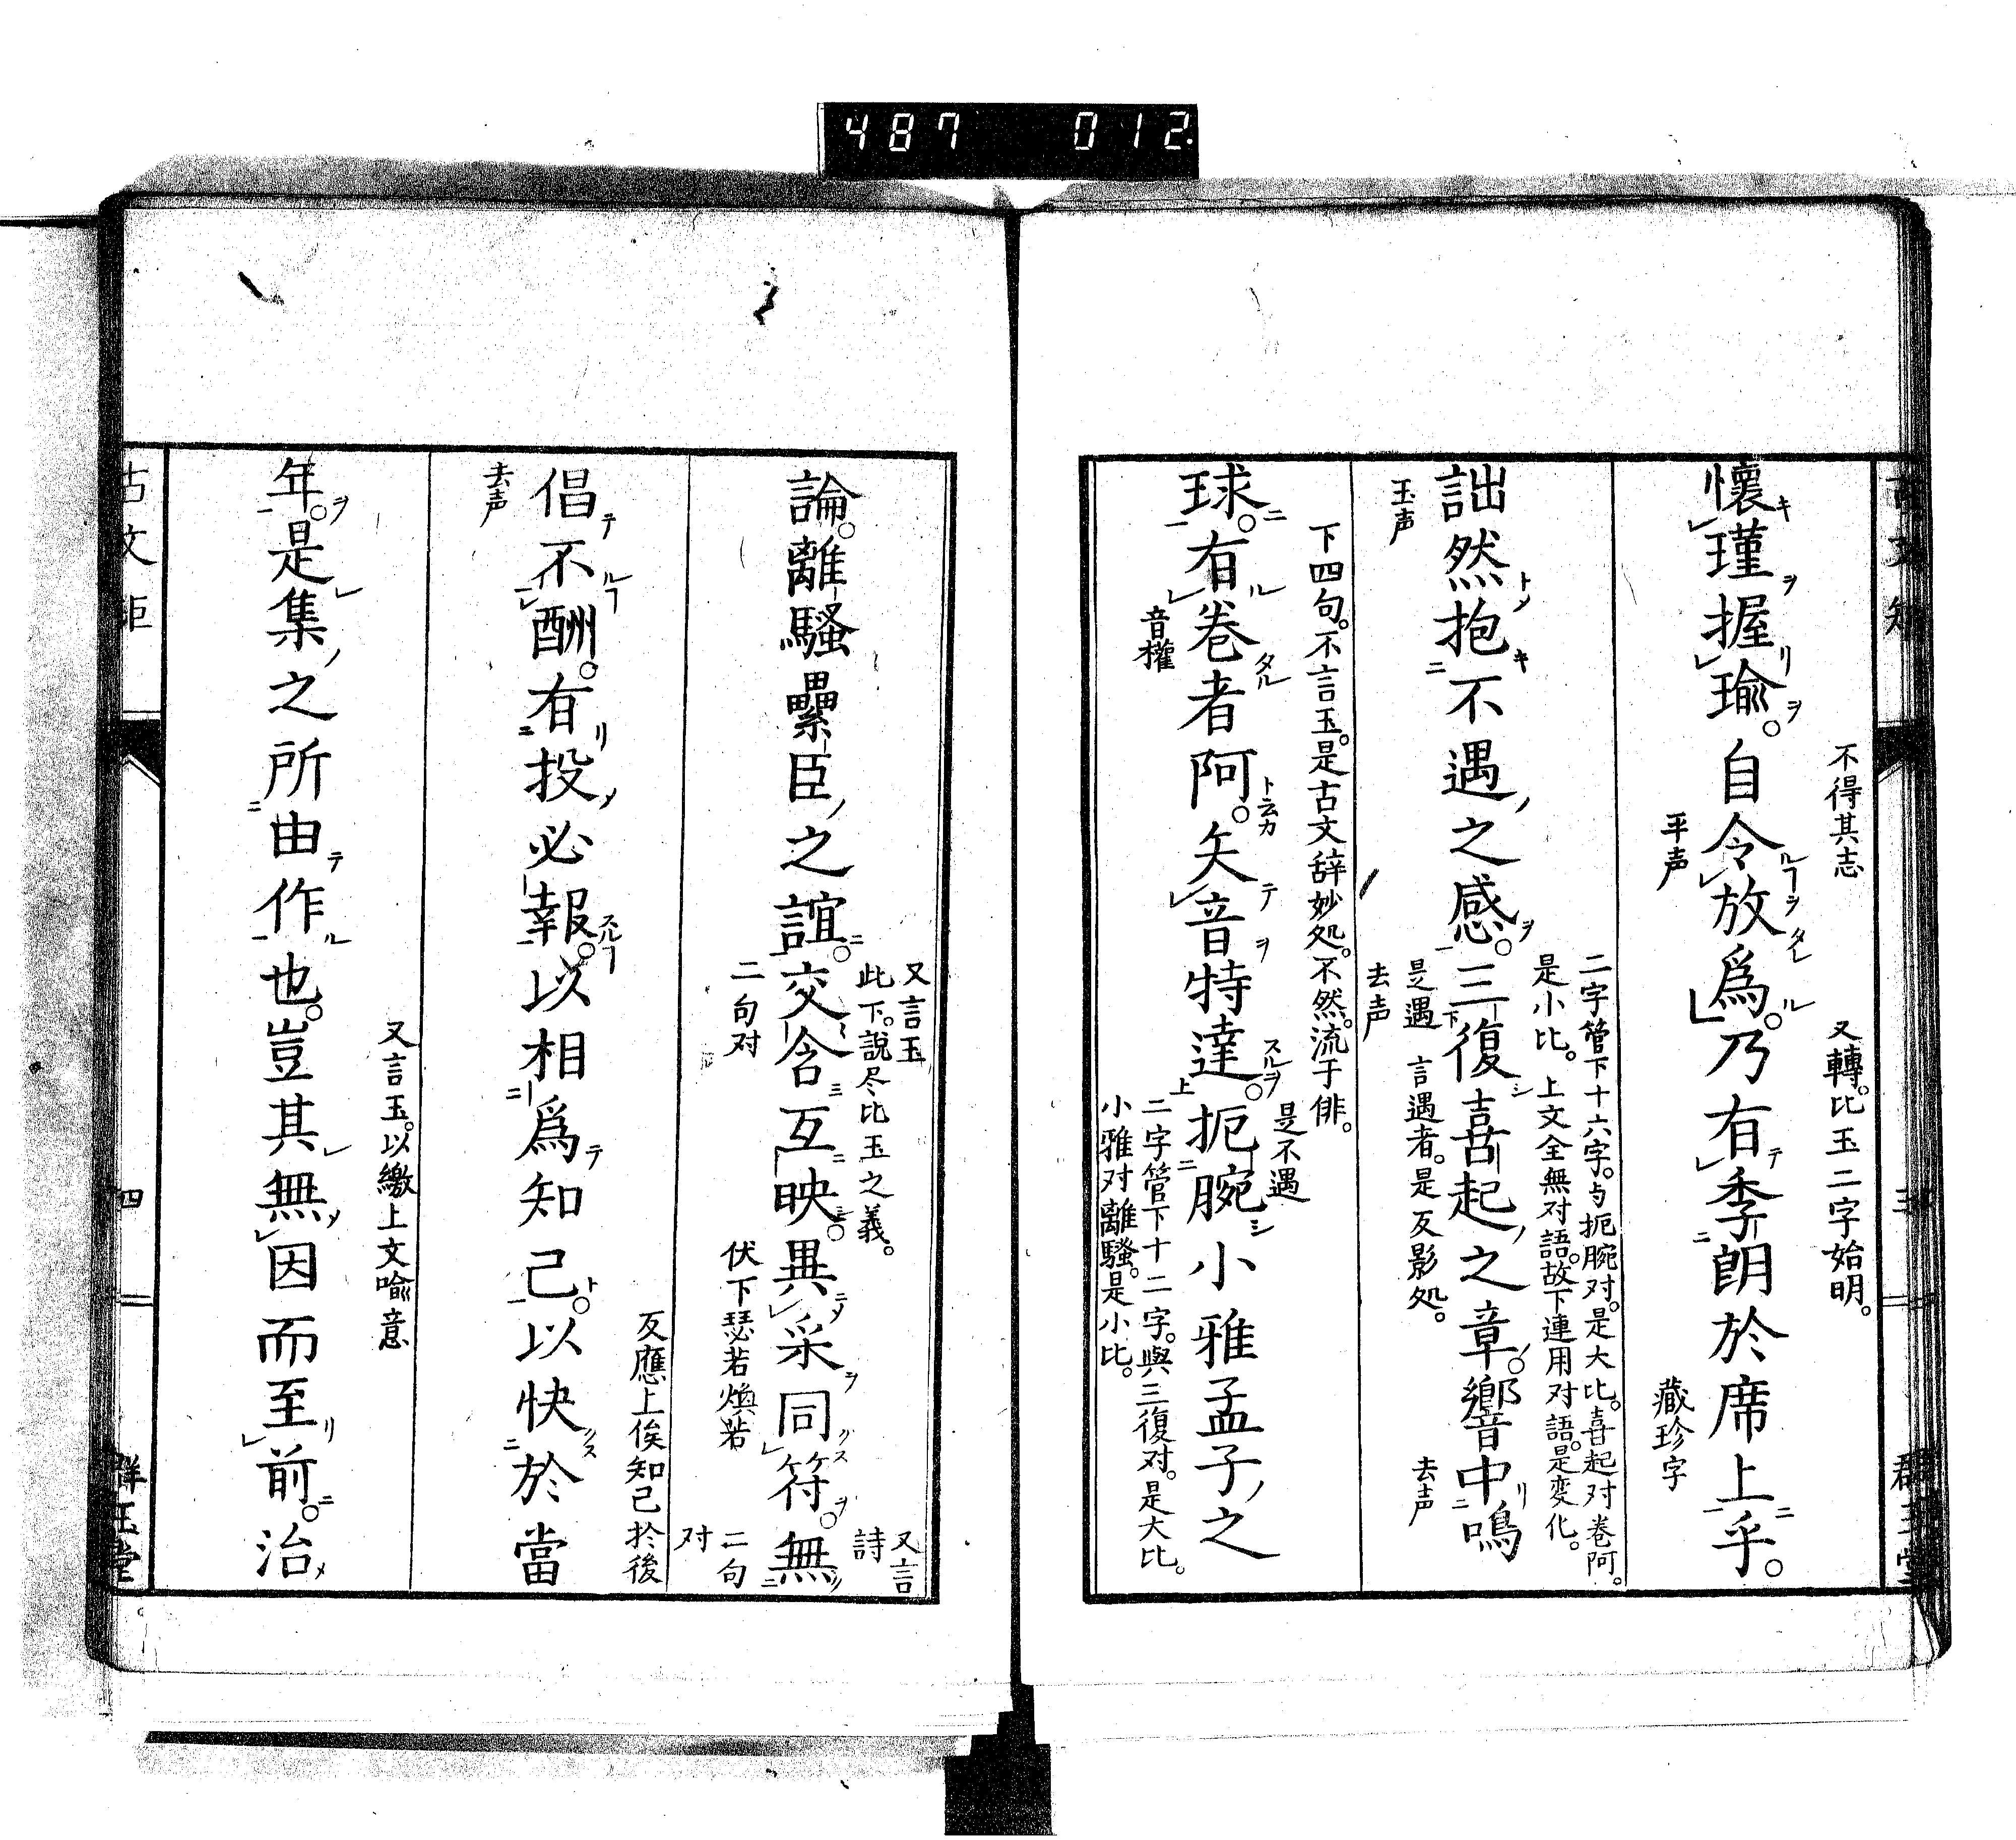 487 012
不得其志
又轉。比玉二字始明。
懷瑾握瑜。自令放爲。乃有季朗於席上乎。
平声
藏珍字
二字管下十六字。与扼腕对。是大比。喜起对卷阿。
是小比。上文全無对語。故下連用对語。是変化。
詘然抱不遇之感。三復喜起之章。響中鳴
玉声
是遇 言遇者。是反影処。
去声
去声
下四句。不言玉。是古文辞妙処。不然。流于俳。
是不遇
球。有卷者阿。矢音特達。扼腕小雅孟子之
音權
二字管下十二字。與三復对。是大比。
小雅对離騷。是小比。
又言玉
此下。說尽比玉之義。
又言詩
論。離騷纍臣之誼。交含互映。異采同符。無
二句对
伏下瑟若煥若
二句对
反應上俟知己於後
倡不酬。有投必報。以相爲知己。以快於當
去声
又言玉。以繳上文喻意
年。是集之所由作也。豈其無因而至前。治
古文矩
四
群玉堂